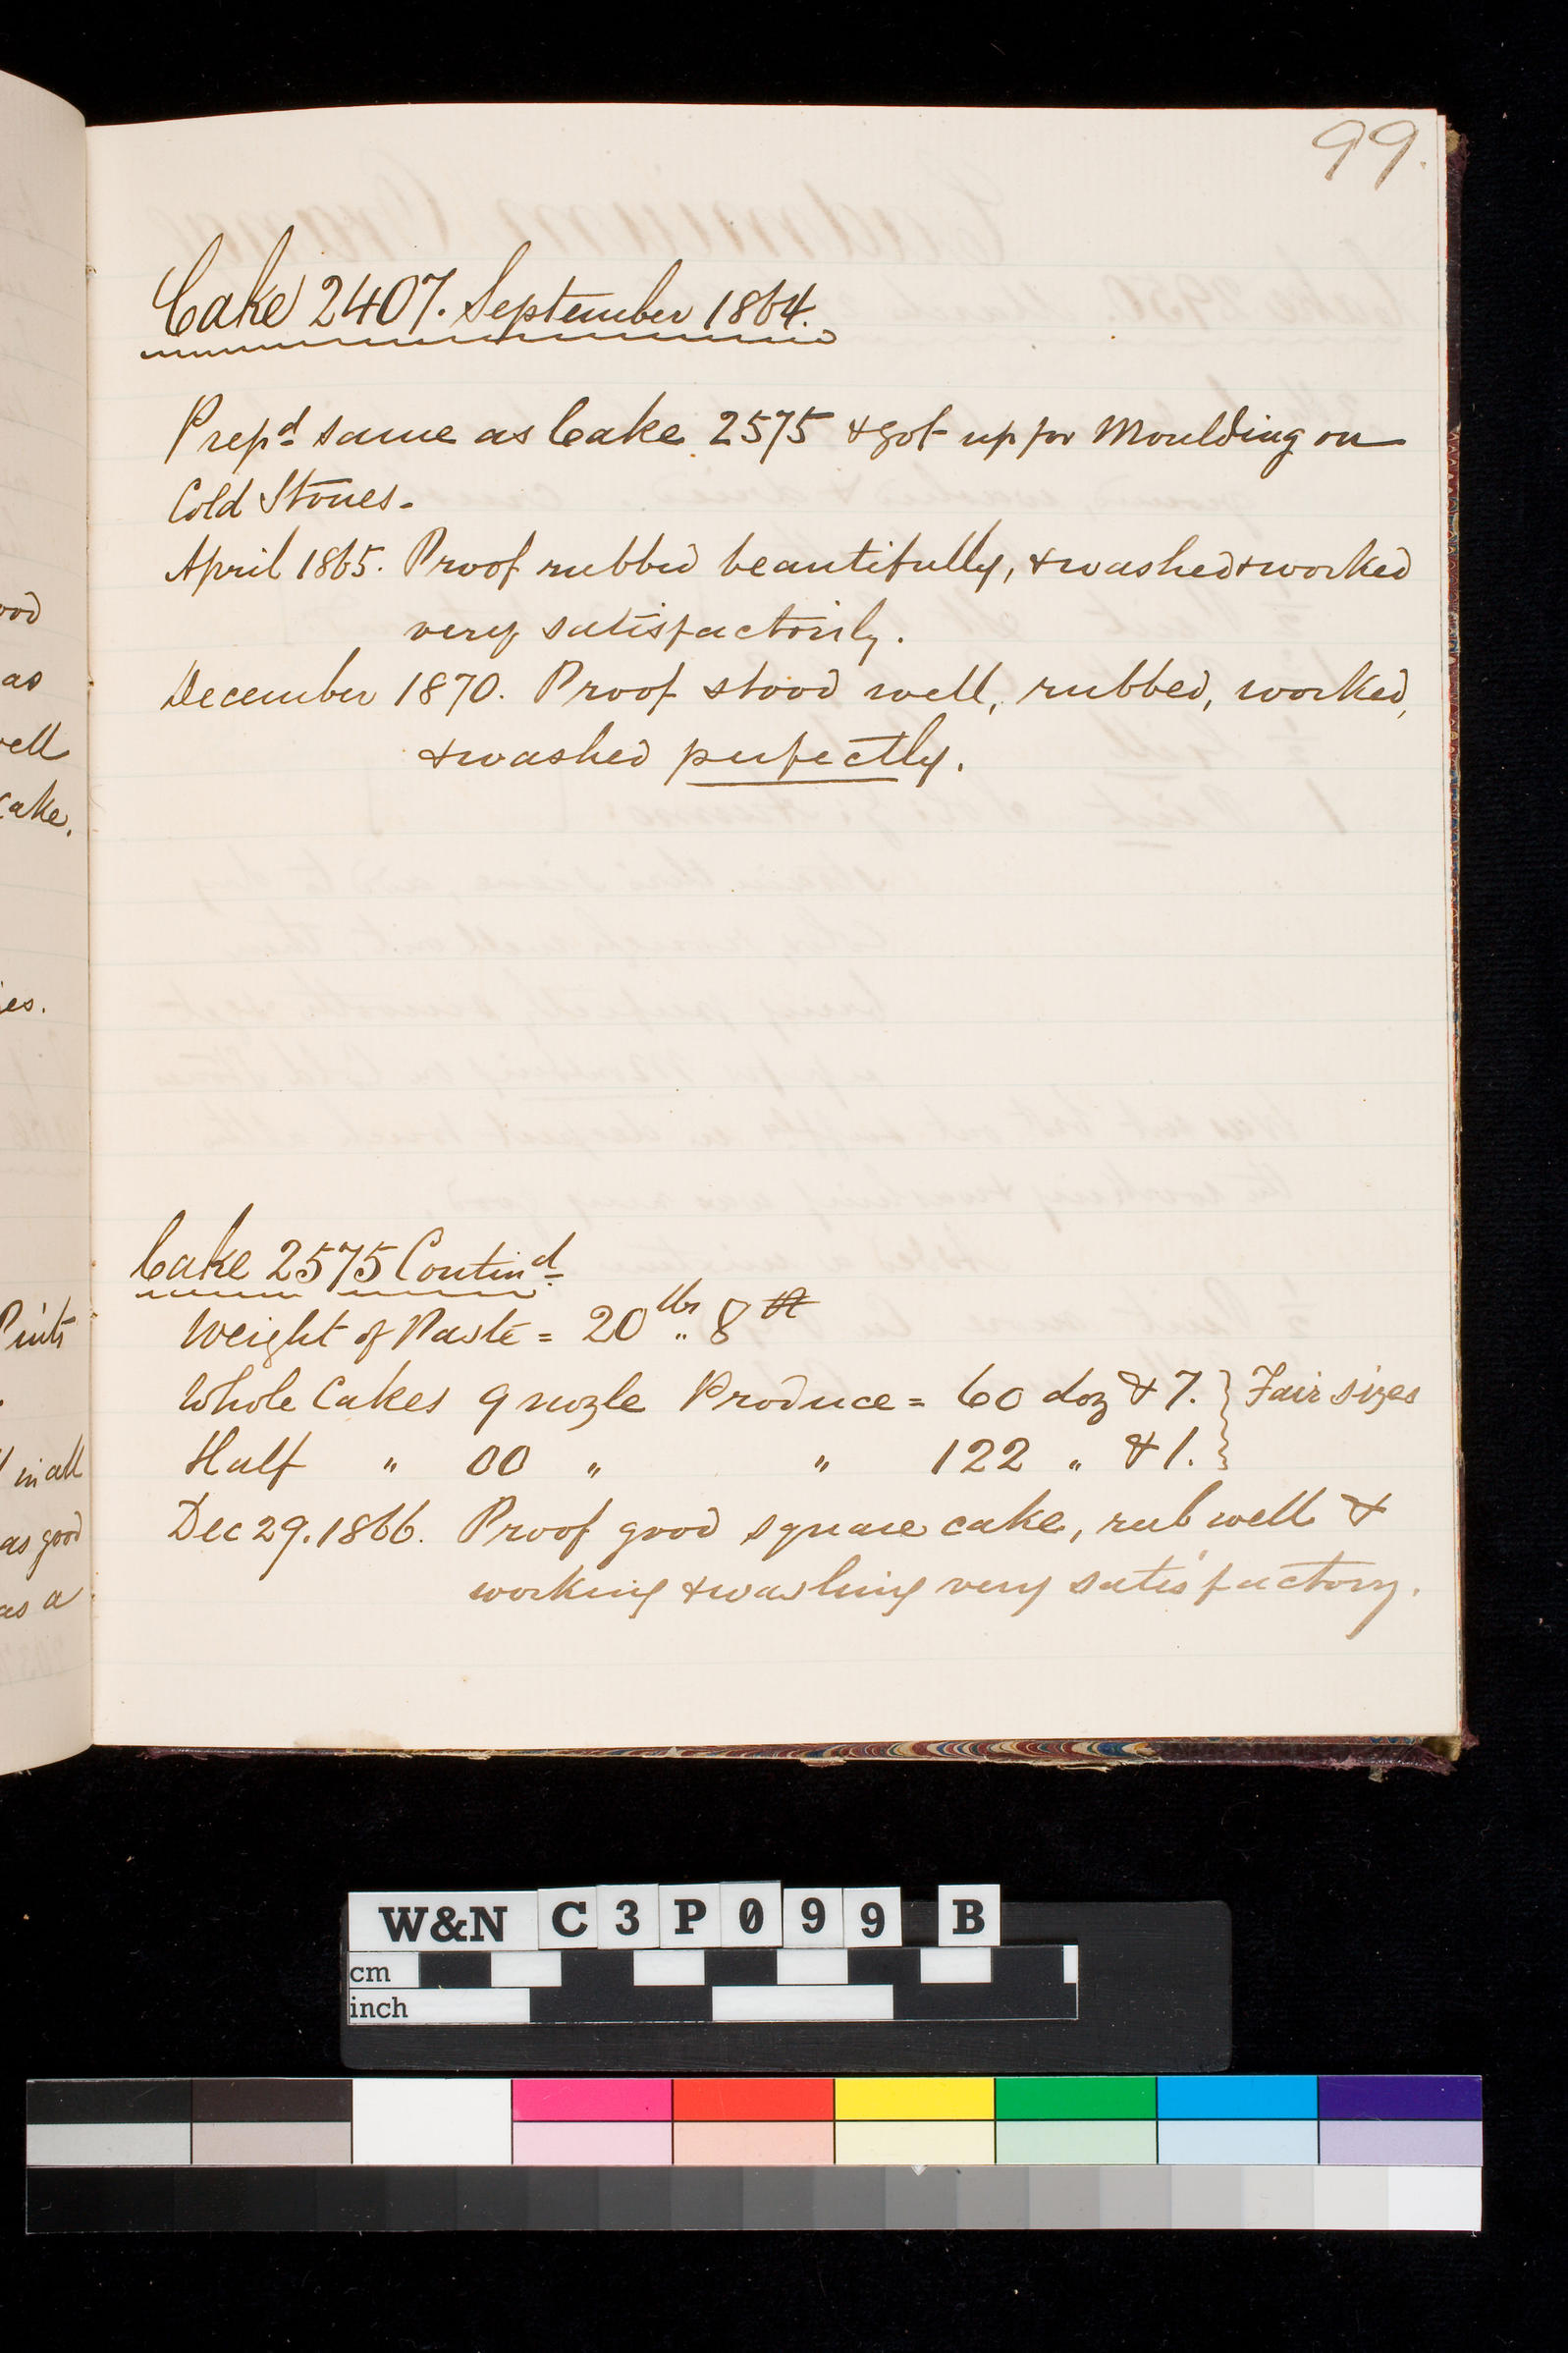 99.
Cake 2407. September 1864.
Prepd same as Cake 2575 & got up for Moulding on
Cold Stones.
April 1865. Proof rubbed beautifully, & washed & worked
very satisfactorily.
December 1870. Proof stood well, rubbed, worked,
& washed perfectly.
Cake 2575 Contind.
Weight of Paste = 20 lbs „ 8
Whole Cakes 9 nozle Produce = 60 doz & 7. } Fair sizes
Half „ 00 „ „ 122 „ & 1.
Dec 29. 1866. Proof good square cake, rub well &
working & washing very satisfactory.
ood
as
well
cake.
es.
Pints
in all
as good
as a
W&N C3P099 B
cm
inch